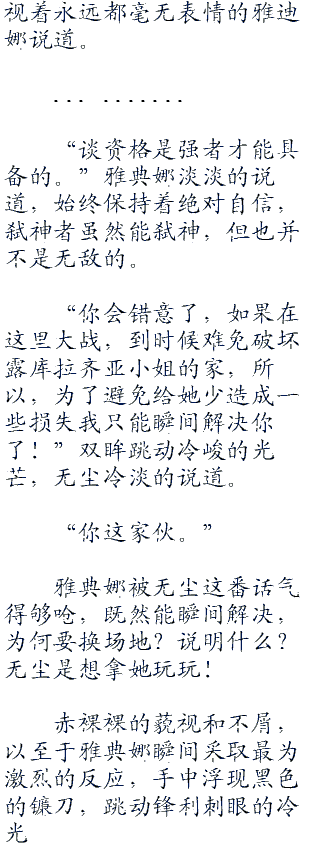 视着永远都毫无表情的雅迪
娜说道。
... .......
“谈资格是强者才能具
备的。”雅典娜淡淡的说
道，始终保持着绝对自信，
弑神者虽然能弑神，但也并
不是无敌的。
“你会错意了，如果在
这里大战，到时候难免破坏
露库拉齐亚小姐的家，所
以，为了避免给她少造成一
些损失我只能瞬间解决你
了！”双眸跳动冷峻的光
芒，无尘冷淡的说道。
“你这家伙。”
雅典娜被无尘这番话气
得够呛，既然能瞬间解决，
为何要换场地？说明什么？
无尘是想拿她玩玩！
赤裸裸的藐视和不屑，
以至于雅典娜瞬间采取最为
激烈的反应，手中浮现黑色
的镰刀，跳动锋利刺眼的冷
光